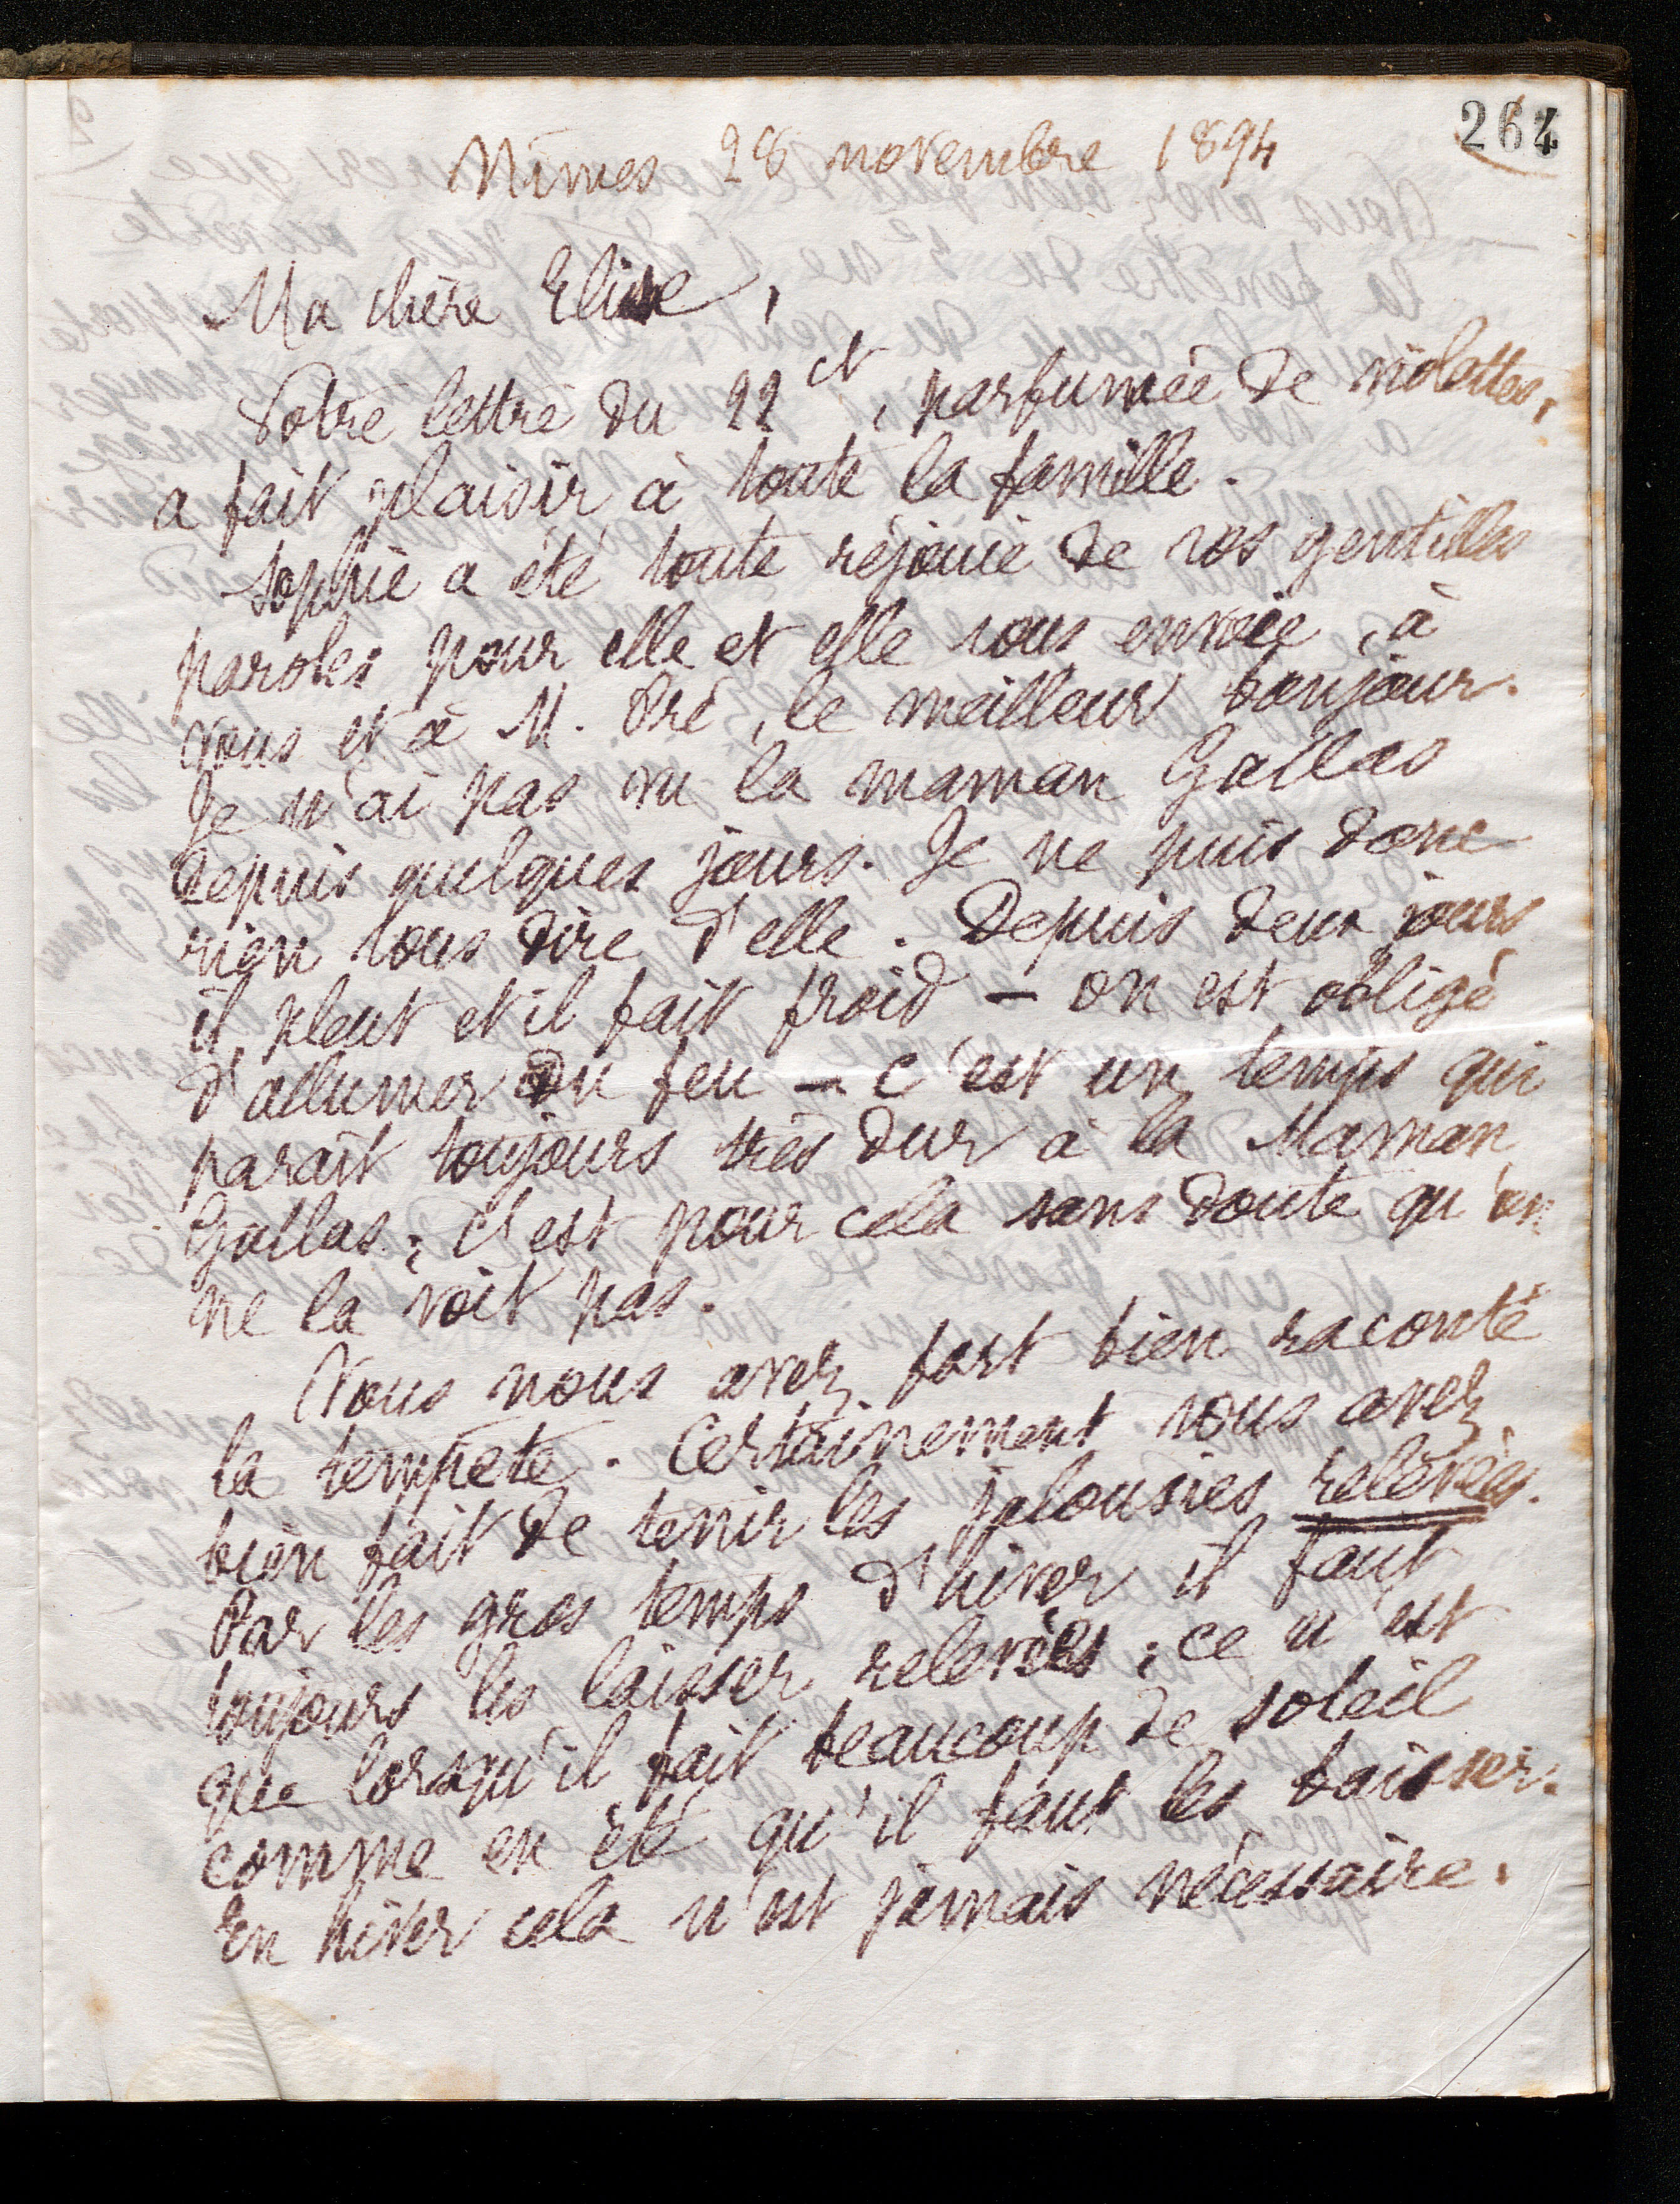 264
Nîmes 28 novembre 1894
Ma chère Elise,
Votre lettre du 22 ct, parfumée de violettes,
a fait plaisir à toute la famille.
Sophie a été toute réjouie de vos gentilles
paroles pour elle et elle vous envoie, à
vous et à M. Pré, le meilleur bonjour.
Je n'ai pas vu la maman Gallas
depuis quelques jours. Je ne puis donc
rien vous dire d'elle. Depuis deux jours
il pleut et il fait froid — on est obligé
d'allumer du feu — c'est un temps qui
parait toujours très dur à la Maman
Gallas; c'est pour cela sans doute qu'on
ne la voit pas.
Vous nous avez fort bien raconté
la tempête. Certainement vous avez
bien fait de tenir les jalousies relevées.
Par les gros temps d'hiver il faut
toujours les laisser relevées; ce n'est
que lorsqu'il fait beaucoup de soleil
comme en été qu'il faut les baisser.
En hiver cela n'est jamais nécessaire.